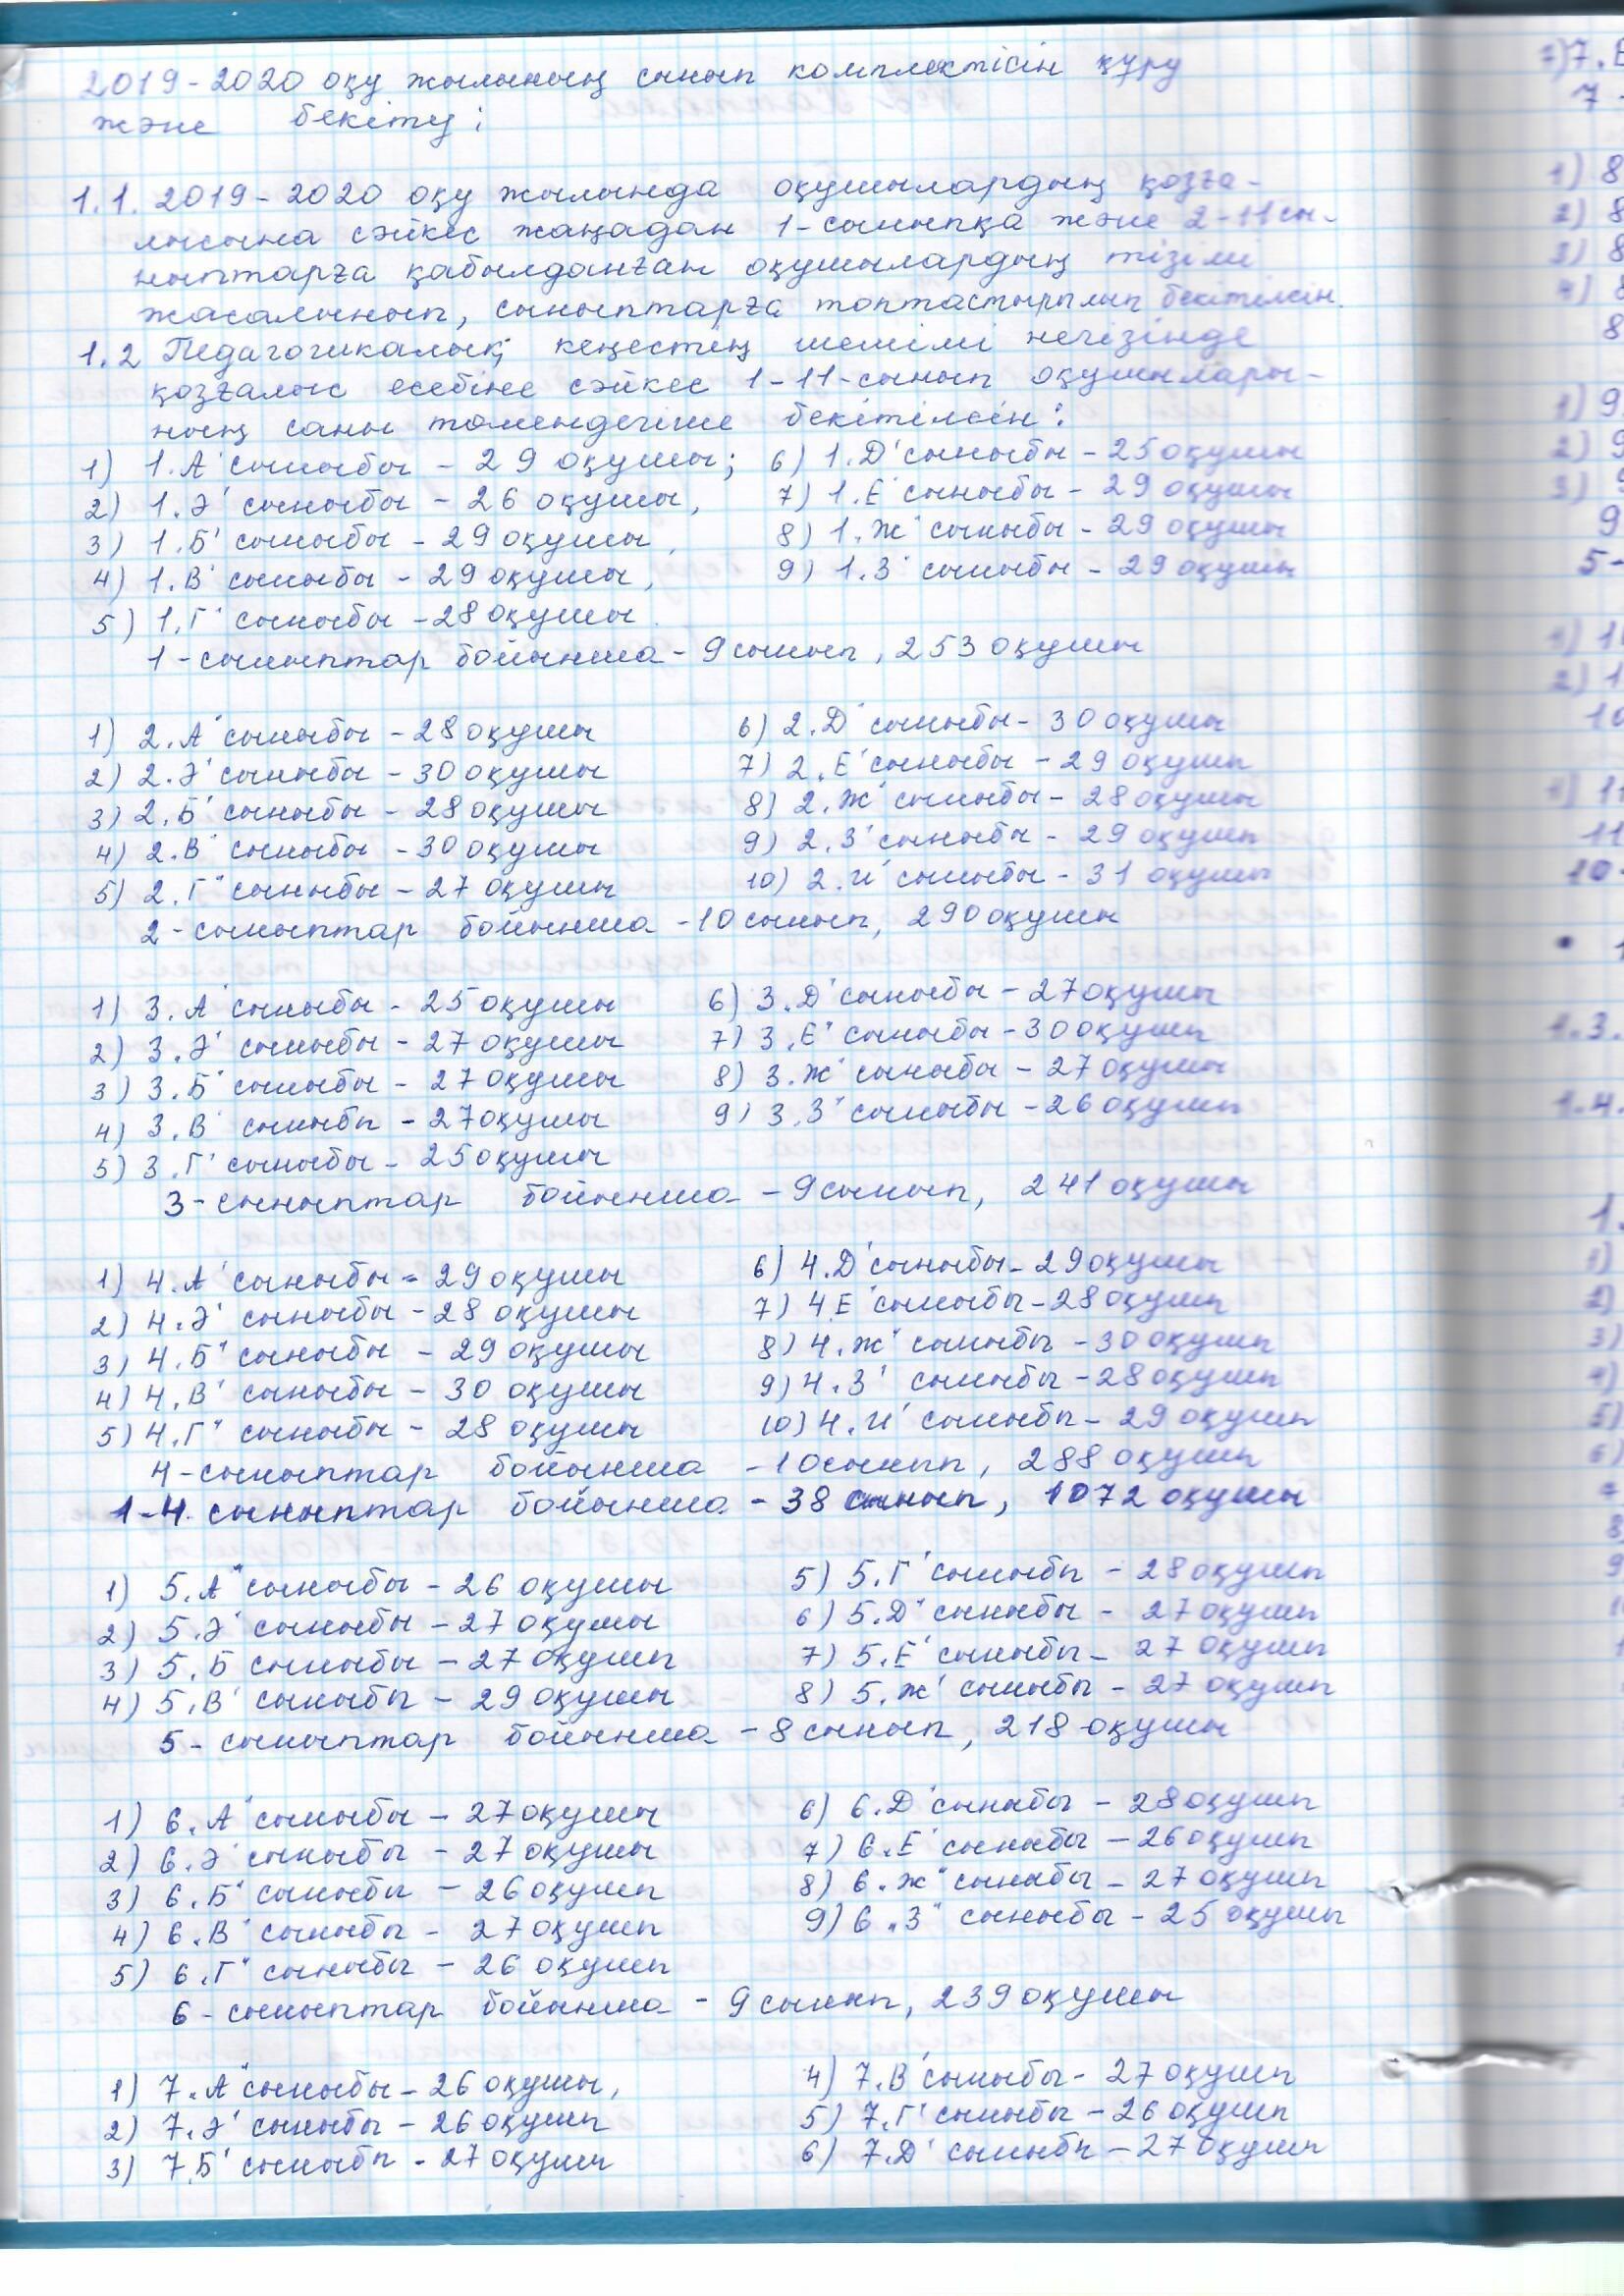 2019-2020 оқу жылының сынып комплектісін құру
және бекіту;
1.1. 2019-2020 оқу жылында оқушылардың қозға-
лысына сәйкес жаңадан 1-сыныпқа және 2-11 сы-
ныптарға қабылданған оқушылардың тізімі
жасалынып, сыныптарға топтастырылып бекітілсін.
1.2 Педагогикалық кеңестің шешімі негізінде
қозғалыс есебіне сәйкес 1-11-сынып оқушылары-
ның саны төмендегіше бекітілсін:
1) 1„А" сыныбы - 29 оқушы; 6) 1„Д" сыныбы - 25 оқушы
2) 1„Ә" сыныбы - 26 оқушы, 7) 1„Е" сыныбы - 29 оқушы
3) 1„Б" сыныбы - 29 оқушы, 8) 1„Ж" сыныбы - 29 оқушы
4) 1„В" сыныбы - 29 оқушы, 9) 1„З" сыныбы - 29 оқушы
5) 1„Г" сыныбы - 28 оқушы.
1-сыныптар бойынша - 9 сынып, 253 оқушы
1) 2„А" сыныбы - 28 оқушы 6) 2„Д" сыныбы - 30 оқушы
2) 2„Ә" сыныбы - 30 оқушы 7) 2„Е" сыныбы - 29 оқушы
3) 2„Б" сыныбы - 28 оқушы 8) 2„Ж" сыныбы - 28 оқушы
4) 2„В" сыныбы - 30 оқушы 9) 2„З" сыныбы - 29 оқушы
5) 2„Г" сыныбы - 27 оқушы 10) 2„И" сыныбы - 31 оқушы
2-сыныптар бойынша - 10 сынып, 290 оқушы
1) 3„А" сыныбы - 25 оқушы 6) 3„Д" сыныбы - 27 оқушы
2) 3„Ә" сыныбы - 27 оқушы 7) 3„Е" сыныбы - 30 оқушы
3) 3„Б" сыныбы - 27 оқушы 8) 3„Ж" сыныбы - 27 оқушы
4) 3„В" сыныбы - 27 оқушы 9) 3„З" сыныбы - 26 оқушы
5) 3„Г" сыныбы - 25 оқушы
3-сыныптар бойынша - 9 сынып, 241 оқушы
1) 4„А" сыныбы - 29 оқушы 6) 4„Д" сыныбы - 29 оқушы
2) 4„Ә" сыныбы - 28 оқушы 7) 4„Е" сыныбы - 28 оқушы
3) 4„Б" сыныбы - 29 оқушы 8) 4„Ж" сыныбы - 30 оқушы
4) 4„В" сыныбы - 30 оқушы 9) 4„З" сыныбы - 28 оқушы
5) 4„Г" сыныбы - 28 оқушы 10) 4„И" сыныбы - 29 оқушы
4-сыныптар бойынша - 10 сынып, 288 оқушы
1-4 сыныптар бойынша - 38 сынып, 1072 оқушы
1) 5„А" сыныбы - 26 оқушы 5) 5„Г" сыныбы - 28 оқушы
2) 5„Ә" сыныбы - 27 оқушы 6) 5„Д" сыныбы - 27 оқушы
3) 5„Б" сыныбы - 27 оқушы 7) 5„Е" сыныбы - 27 оқушы
4) 5„В" сыныбы - 29 оқушы 8) 5„Ж" сыныбы - 27 оқушы
5-сыныптар бойынша - 8 сынып, 218 оқушы
1) 6„А" сыныбы - 27 оқушы 6) 6„Д" сыныбы - 28 оқушы
2) 6„Ә" сыныбы - 27 оқушы 7) 6„Е" сыныбы - 26 оқушы
3) 6„Б" сыныбы - 26 оқушы 8) 6„Ж" сыныбы - 27 оқушы
4) 6„В" сыныбы - 27 оқушы 9) 6„З" сыныбы - 25 оқушы
5) 6„Г" сыныбы - 26 оқушы
6-сыныптар бойынша - 9 сынып, 239 оқушы
1) 7„А" сыныбы - 26 оқушы, 4) 7„В" сыныбы - 27 оқушы
2) 7„Ә" сыныбы - 26 оқушы 5) 7„Г" сыныбы - 26 оқушы
3) 7„Б" сыныбы - 27 оқушы 6) 7„Д" сыныбы - 27 оқушы